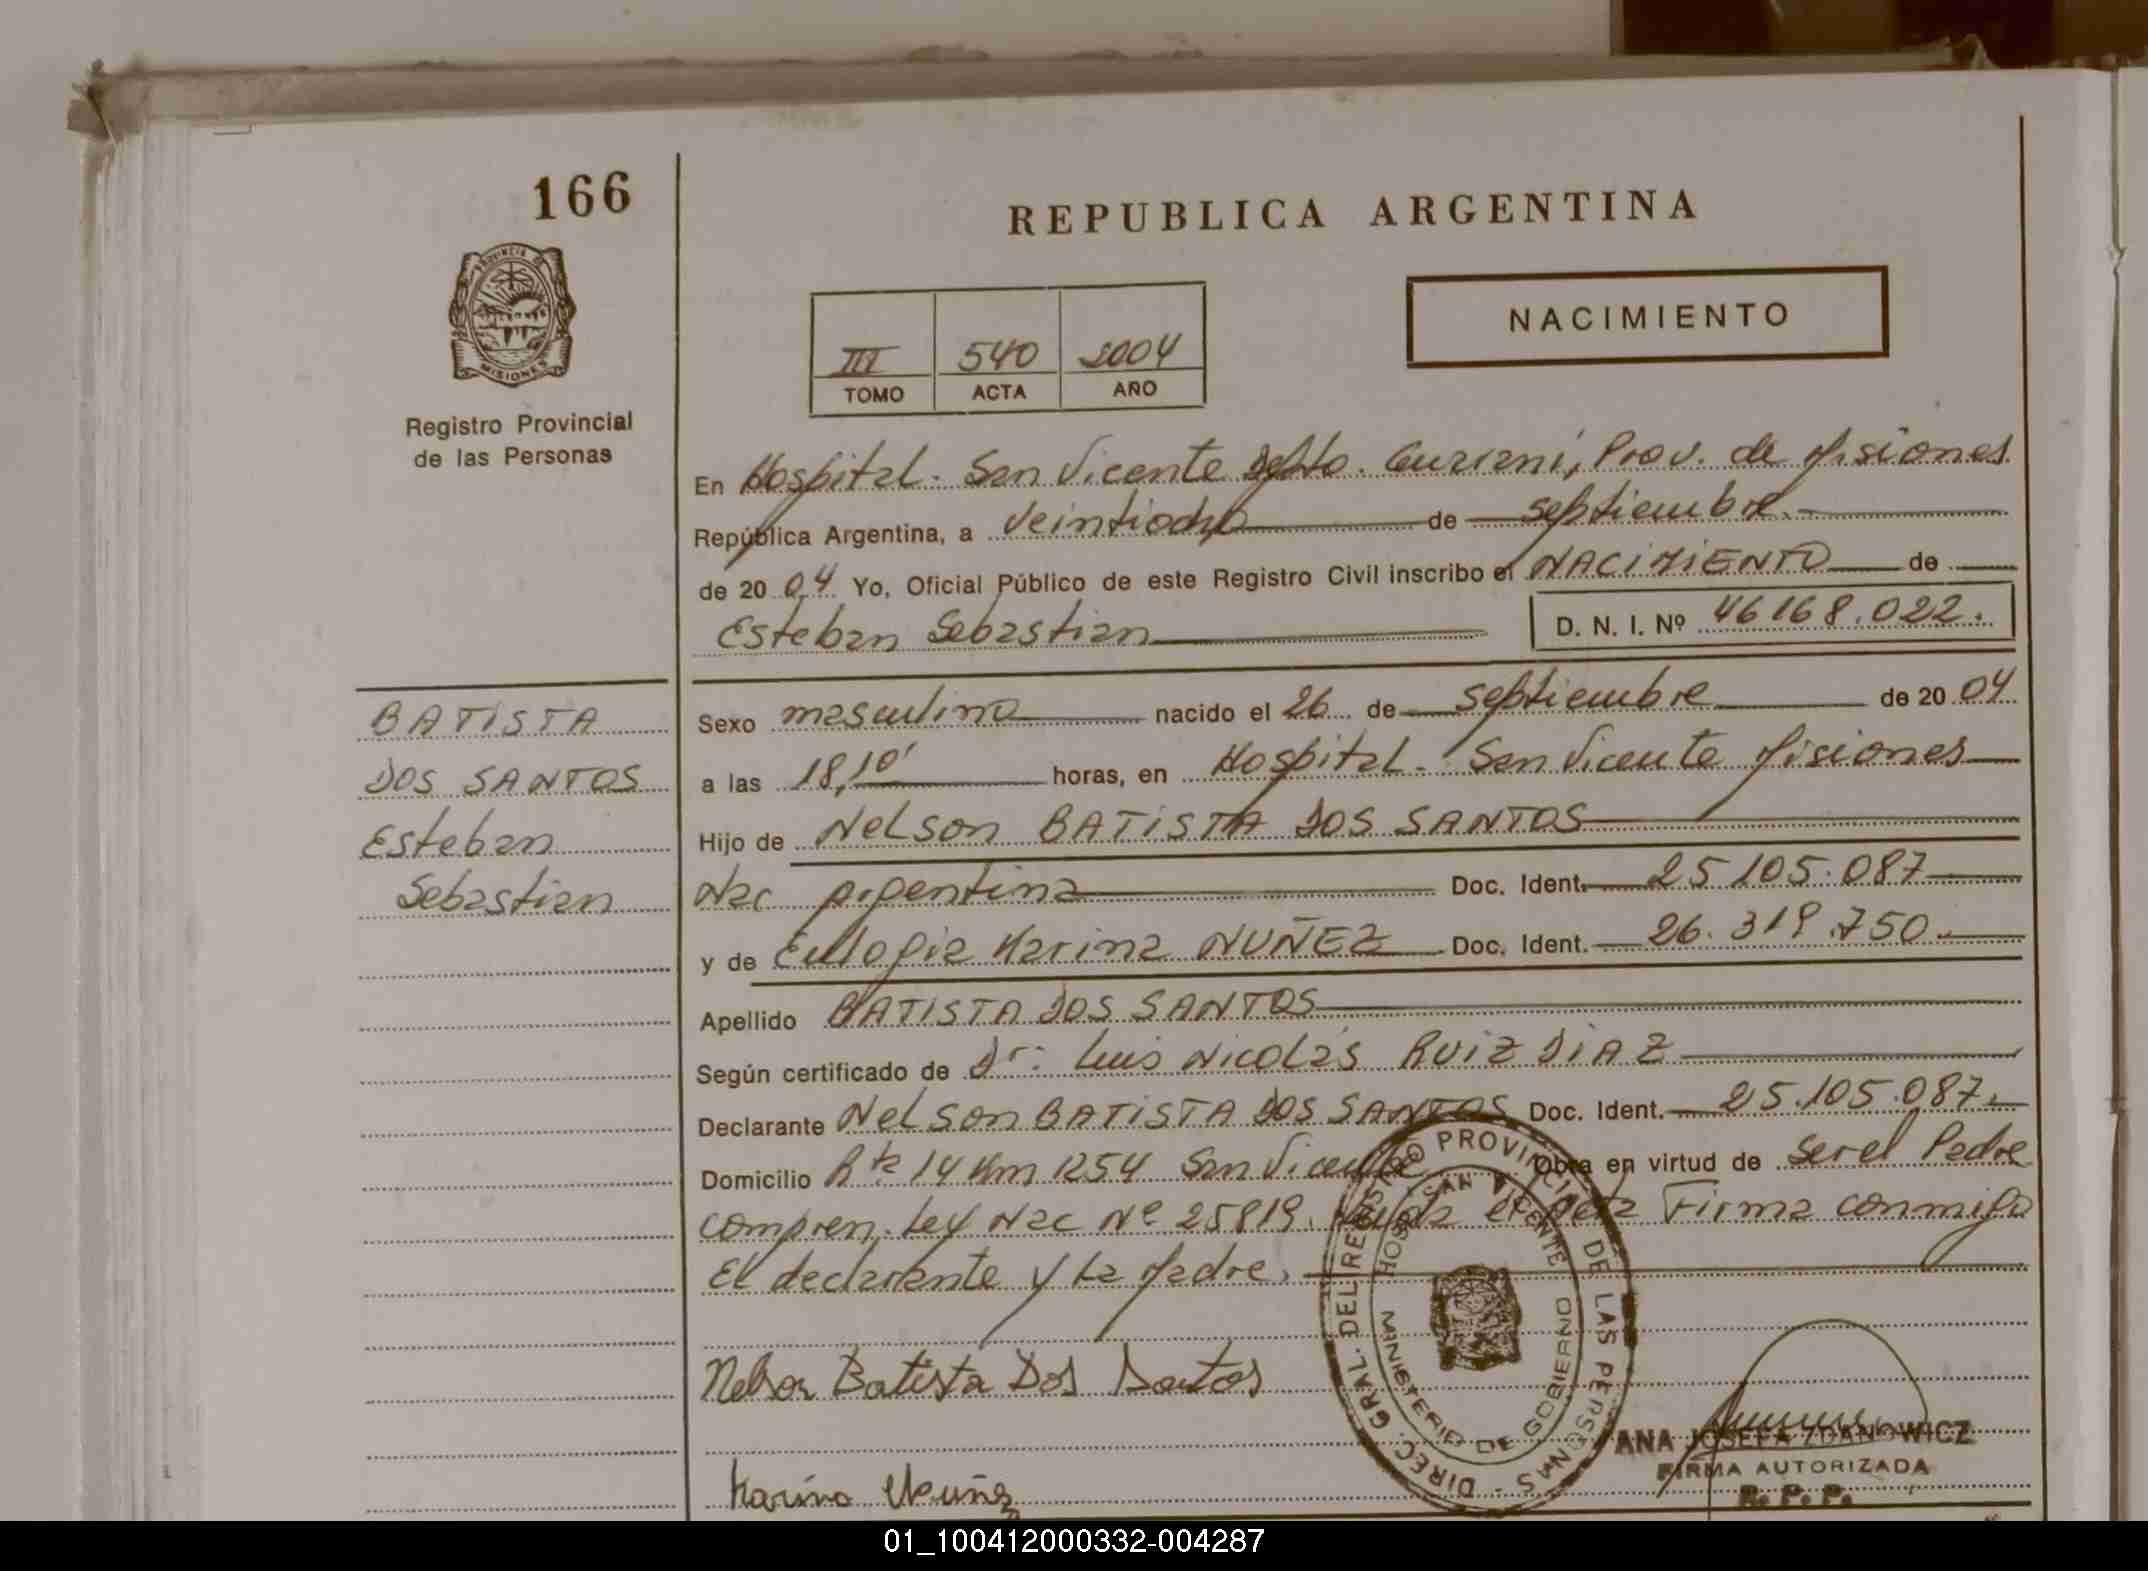 166
REPUBLICA ARGENTINA
PROVINCIA DE
MISIONES
Registro Provincial
de las Personas
NACIMIENTO
III 540 2004
TOMO ACTA AÑO
En Hospital. San Vicente Depto. Guarani, Prov. de Misiones
República Argentina, a veintiocho de septiembre.
de 20 04 Yo, Oficial Público de este Registro Civil inscribo el NACIMIENTO de
Esteban Sebastian D. N. I. Nº 46168.022.
BATISTA
DOS SANTOS
Esteban
Sebastian
Sexo masculino nacido el 26 de septiembre de 20 04
a las 18,10' horas, en Hospital. San Vicente Misiones
Hijo de Nelson BATISTA DOS SANTOS
Nac argentina Doc. Ident. 25 105.087
y de Eulogia Marina NUÑEZ Doc. Ident. 26.319.750.
Apellido BATISTA DOS SANTOS
Según certificado de Dr: Luis Nicolás RUIZ DIAZ
Declarante Nelson BATISTA DOS SANTOS Doc. Ident. 25.105.087.
Domicilio Rta 14 Km 1254 San Vicente Obra en virtud de ser el Padre
compren. Ley Nac Nº 25819. el acta Firma conmigo
El declarante y la Madre.
Nelson Batista Dos Santos
Karina Nuñez
DIREC. GRAL. DEL REGISTRO PROVINCIAL DE LAS PERSONAS -
HOSP. SAN VICENTE
MINISTERIO DE GOBIERNO
ANA JOSEFA ZDANOWICZ
FIRMA AUTORIZADA
R. P. P.
01_100412000332-004287